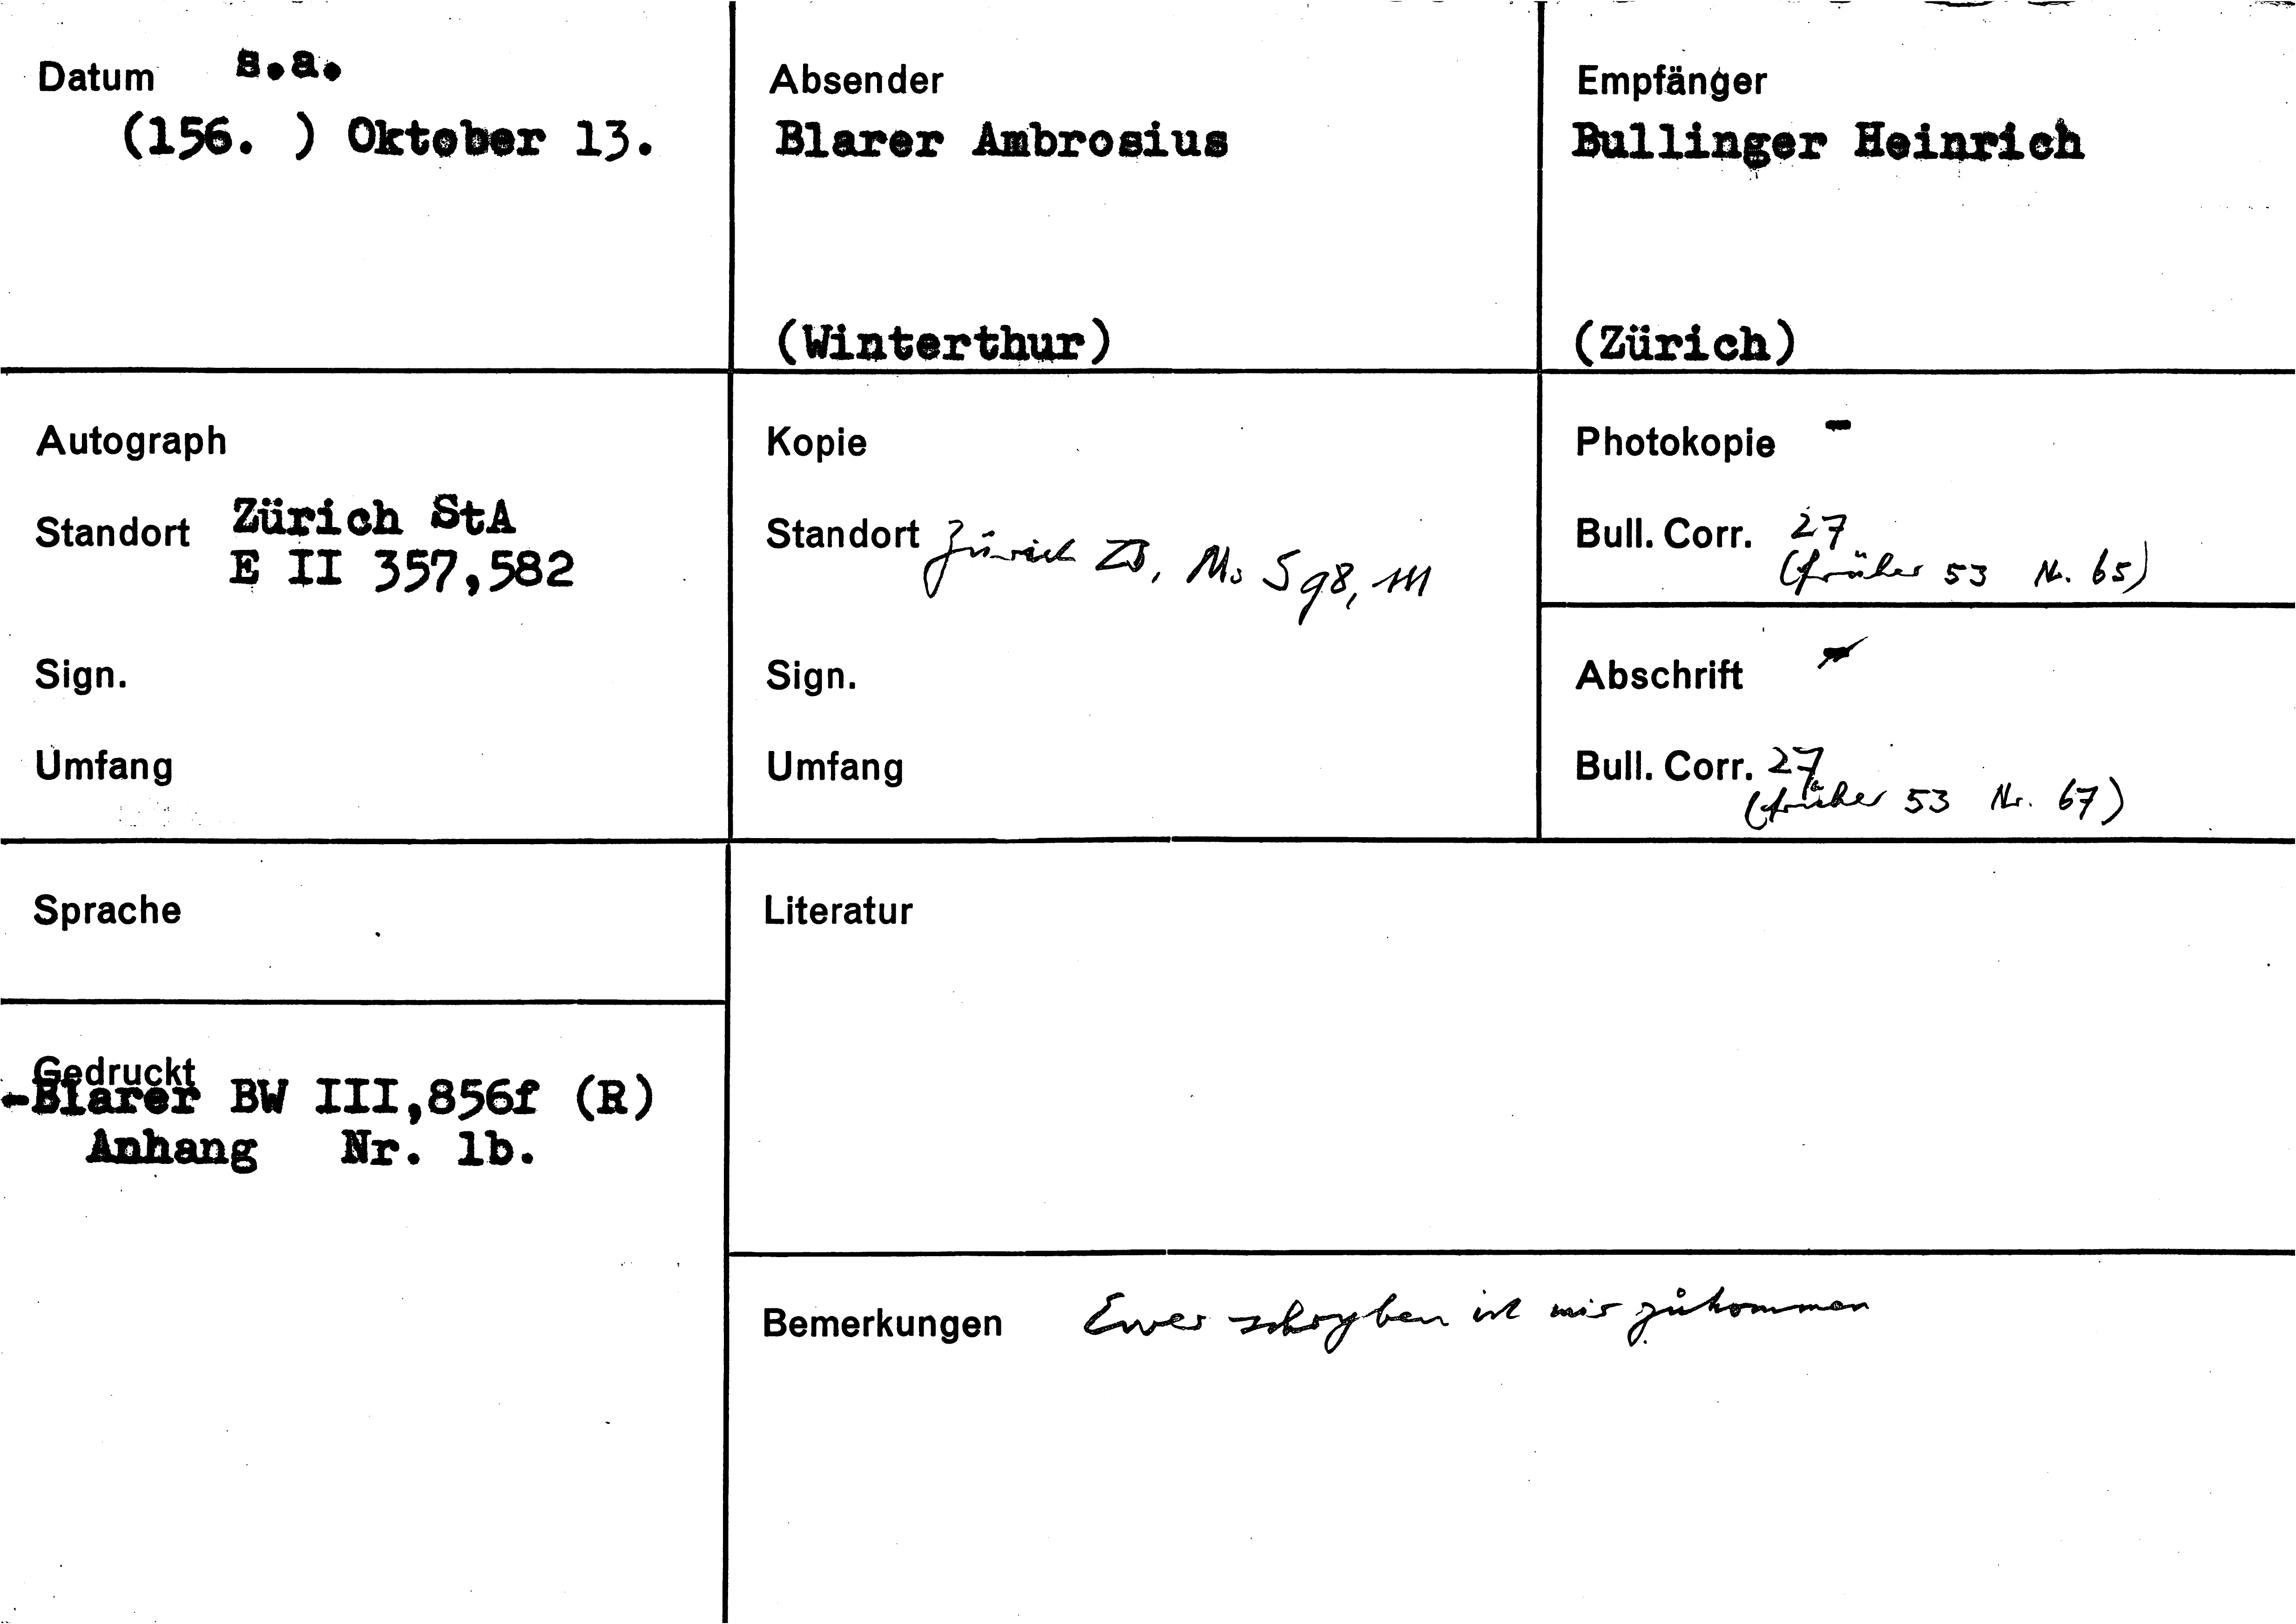 Datum s.a.
(156. ) Oktober 13.
Absender
Blarer Ambrosius
(Winterthur)
Empfänger
Bullinger Heinrich
(Zürich)
Autograph
Standort Zürich StA
E II 357,582
Sign.
Umfang
Kopie
Standort Zürich ZB, Ms S 98, 111
Sign.
Umfang
Photokopie -
Bull. Corr. 27
(früher 53 Nr. 65)
Abschrift -
Bull. Corr. 27
(früher 53 Nr. 67)
Sprache
Literatur
Gedruckt
-Blarer BW III,856f (R)
Anhang Nr. 1b.
Bemerkungen Ewer schryben ist mir zůkommen